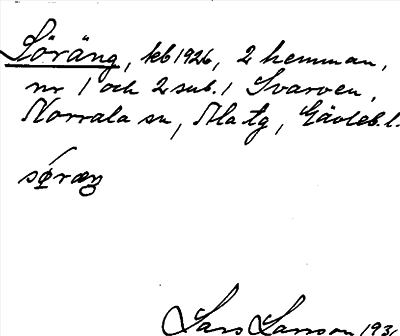 Söräng, kb 1926, 2 hemman,
nr 1 och 2 sub. i Svarven,
Norrala sn, Ala tg, Gävleb. l.
sǿræŋ
Lars Larsson 1931